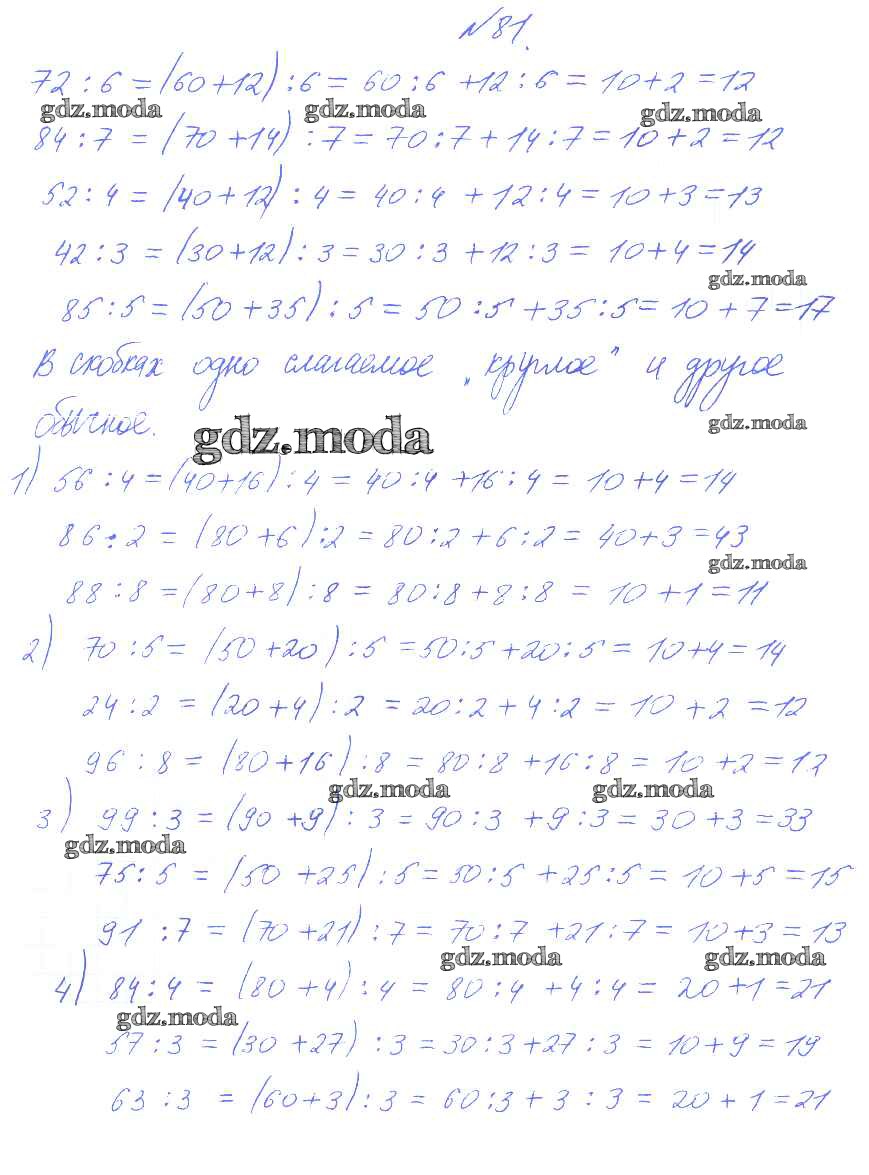 №81.
72 : 6 = (60+12) : 6 = 60 : 6 + 12 : 6 = 10+2 = 12
gdz.moda gdz.moda gdz.moda
84 : 7 = (70+14) : 7 = 70 : 7 + 14 : 7 = 10+2 = 12
52 : 4 = (40+12) : 4 = 40 : 4 + 12 : 4 = 10+3 = 13
42 : 3 = (30+12) : 3 = 30 : 3 + 12 : 3 = 10+4 = 14
gdz.moda
85 : 5 = (50+35) : 5 = 50 : 5 + 35 : 5 = 10+7 = 17
В скобках одно слагаемое „круглое" и другое
обычное.
gdz.moda gdz.moda
1) 56 : 4 = (40+16) : 4 = 40 : 4 + 16 : 4 = 10+4 = 14
86 : 2 = (80+6) : 2 = 80 : 2 + 6 : 2 = 40+3 = 43
gdz.moda
88 : 8 = (80+8) : 8 = 80 : 8 + 8 : 8 = 10+1 = 11
2) 70 : 5 = (50+20) : 5 = 50 : 5 + 20 : 5 = 10+4 = 14
24 : 2 = (20+4) : 2 = 20 : 2 + 4 : 2 = 10+2 = 12
96 : 8 = (80+16) : 8 = 80 : 8 + 16 : 8 = 10+2 = 12
gdz.moda gdz.moda
3) 99 : 3 = (90+9) : 3 = 90 : 3 + 9 : 3 = 30+3 = 33
gdz.moda
75 : 5 = (50+25) : 5 = 50 : 5 + 25 : 5 = 10+5 = 15
91 : 7 = (70+21) : 7 = 70 : 7 + 21 : 7 = 10+3 = 13
gdz.moda gdz.moda
4) 84 : 4 = (80+4) : 4 = 80 : 4 + 4 : 4 = 20+1 = 21
gdz.moda
57 : 3 = (30+27) : 3 = 30 : 3 + 27 : 3 = 10+9 = 19
63 : 3 = (60+3) : 3 = 60 : 3 + 3 : 3 = 20+1 = 21